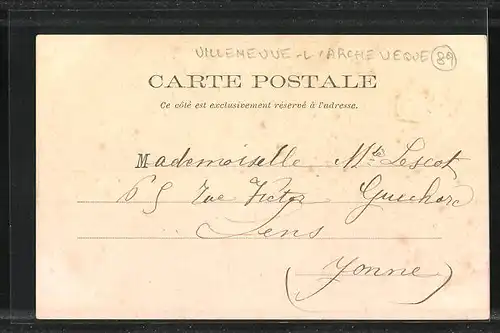 VILLENEUVE-L'ARCHEVEQUE (89)
CARTE POSTALE
Ce côté est exclusivement réservé à l'adresse.
Mademoiselle Mte Lescot
65 Rue Victor Guichard
Sens
(Yonne)